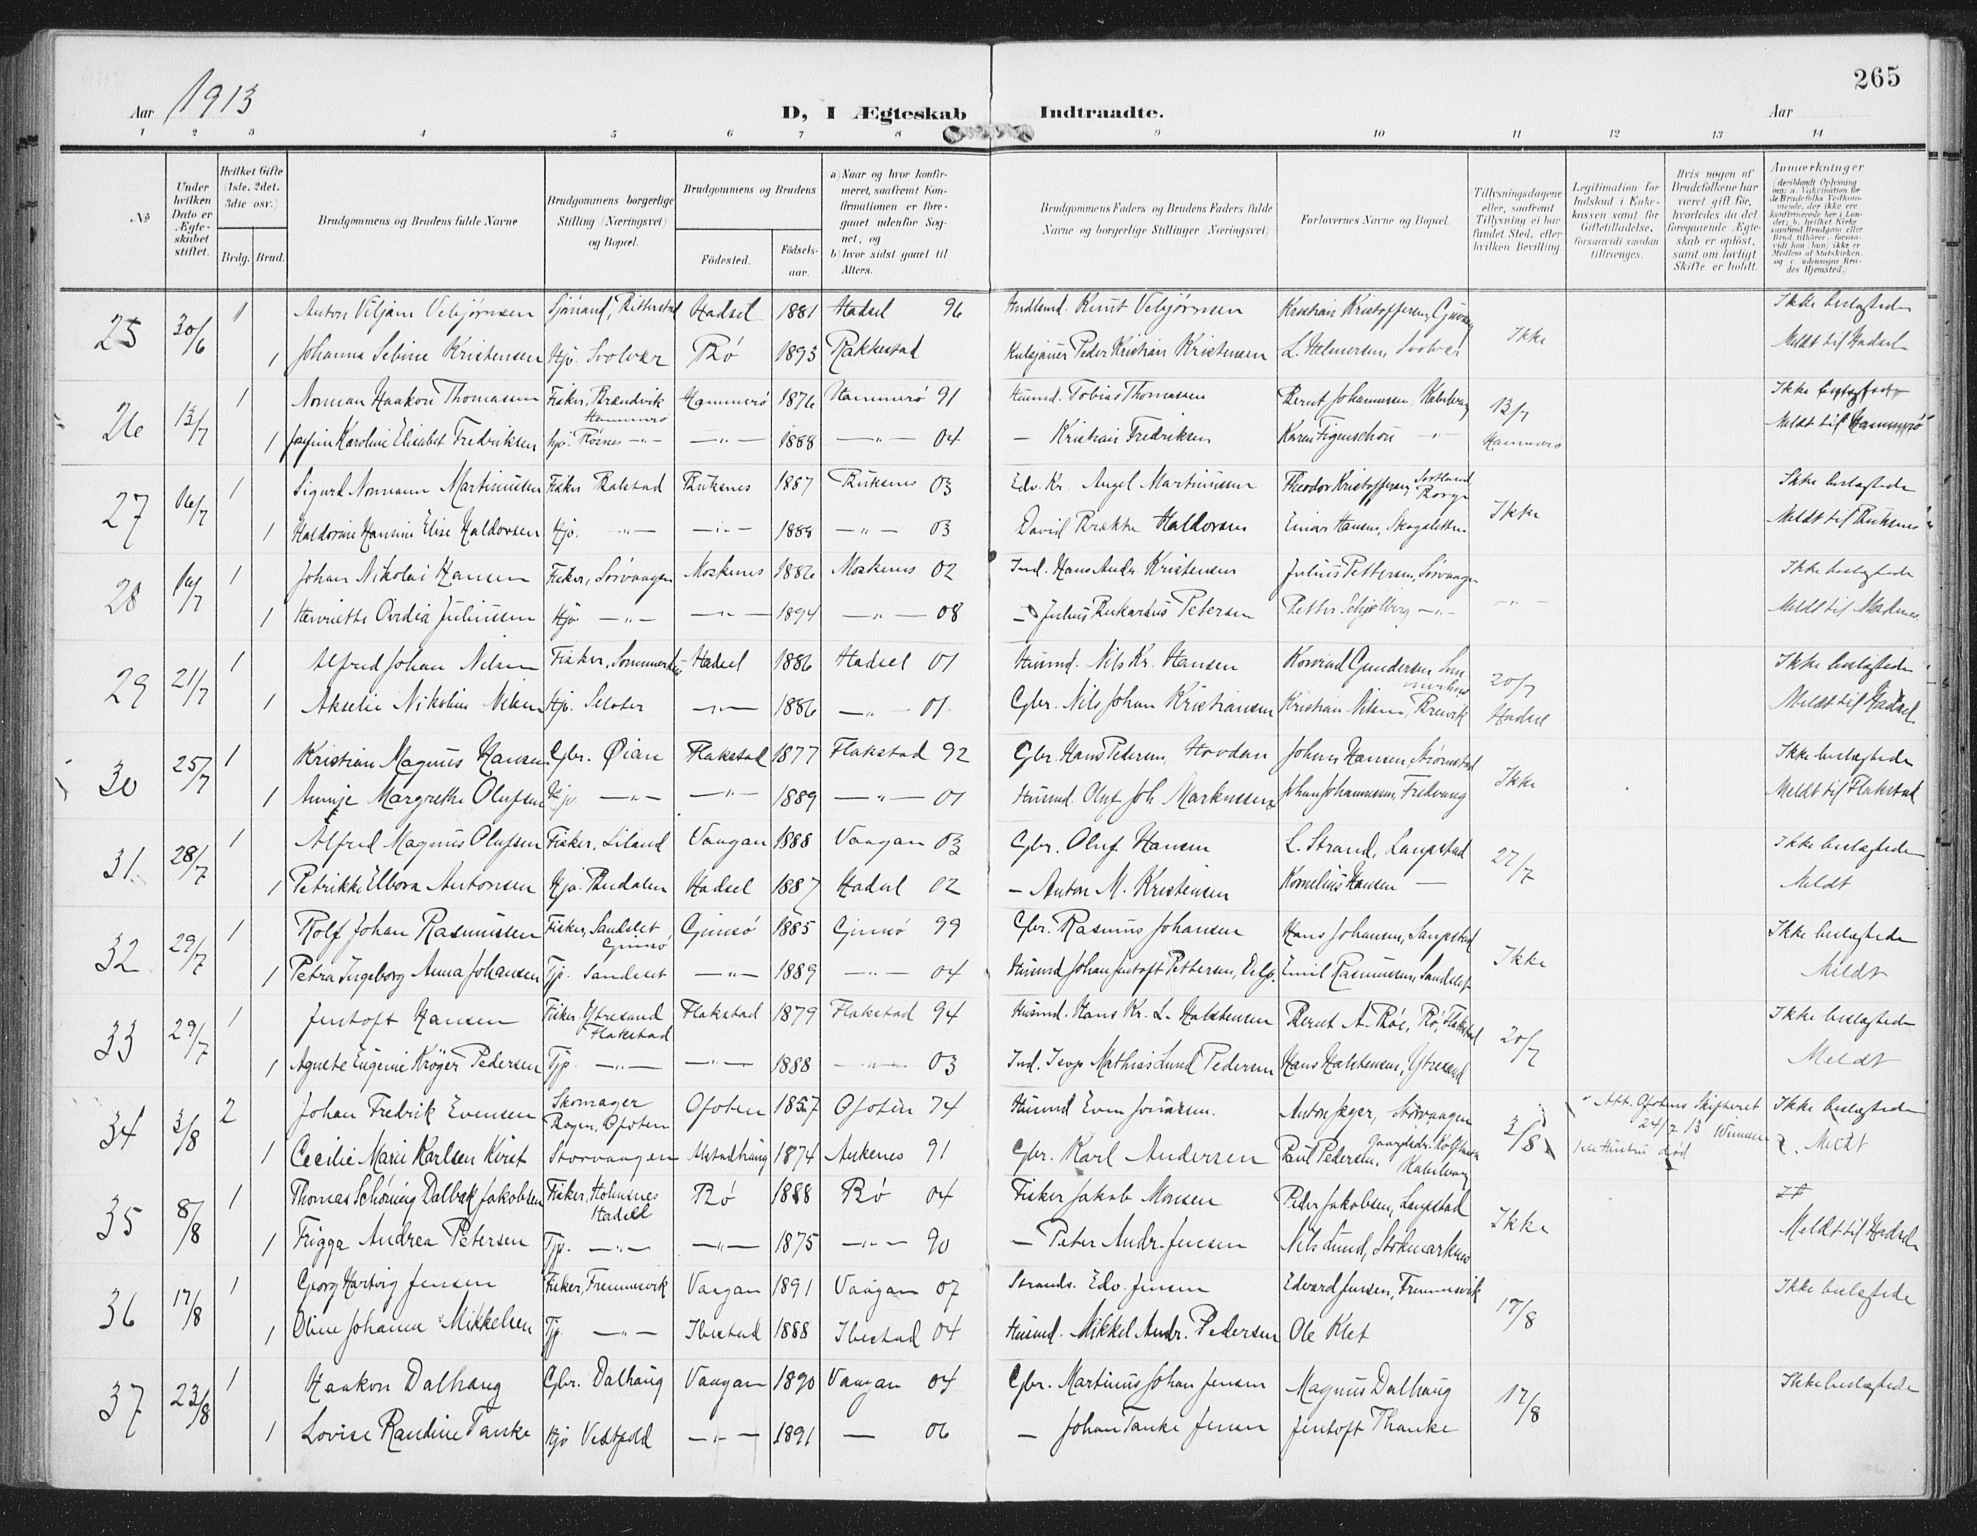 265
Aar 1913
D, I Ægteskab Indtraadte.
Aar
1 2 3 4 5 6 7 8 9 10 11 12 13 14
№
Under hvilken Dato er Ægteskabet stiftet.
Hvilket Gifte (1ste, 2det, 3die osv.)
Brdg. Brud.
Brudgommens og Brudens fulde Navne
Brudgommens borgerlige Stilling (Næringsvei) og Bopæl.
Brudgommens og Brudens
Fødested.
Fødselsaar.
a) Naar og hvor konfirmeret, saafremt Konfirmationen er foregaaet udenfor Sognet, og
b) hvor sidst gaaet til Alters.
Brudgommens Faders og Brudens Faders fulde Navne og borgerlige Stillinger (Næringsvei)
Forlovernes Navne og Bopæl.
Tillysningsdagene eller, saafremt Tillysning ei har fundet Sted, efter hvilken Bevilling.
Legitimation for Indskud i Enkekassen samt for Giftetilladelse, forsaavidt saadan tiltrænges.
Hvis nogen af Brudefolkene har været gift før, hvorledes da det foregaaende Ægteskab er opløst, samt om lovligt Skifte er holdt.
Anmærkninger
25 30/6 1 Anton Viljam Vebjørnsen Hadsel 1881 Hadsel 96 Knut Vebjørnsen Kristian Kristoffersen Ikke Ikke beslægtede
1 Johanna Seline Kristensen Hjo. Svolvær Bø 1893 Rakkestad Peder Kristian Kristensen L. Helmersen, Svolvær Meldt til Hadsel
26 13/7 1 Norman Haakon Thomassen Fisker, Brændvik Hammerö Hammerö 1876 Hammerö 91 Husmd. Tobias Thomassen Bernt Johannessen, Kabelvaag 13/7 Hammerö Ikke beslægtede
1 Karoline Elisabet Fredriksen —„— 1888 —„— 04 — Kristian Fredriksen Karen Figenschou —„— Meldt til Hammerö
27 16/7 1 Sigurd Normann Martinussen Fisker Balstad Buksnes 1887 Buksnes 03 Edv. Kr. Angel Martinussen Theodor Kristoffersen, Sortland Ikke Ikke beslægtede
1 Haldorine Hansine Elise Haldorsen Hjo. —„— —„— 1888 —„— 03 David Brække Haldorsen Einar Hansen, Meldt til Buksnes
28 16/7 1 Johan Nikolai Hansen Fisker, Sörvaagen Moskenes 1886 Moskenes 02 Ind. Hans Andr. Kristensen Julius Pettersen, Sörvaagen —„— Ikke beslægtede
1 Henriette Ovidia Juliussen Hjo —„— —„— 1894 —„— 08 — Julius Petersen Petter Schjelberg —„—
29 21/7 1 Alfred Johan Nilsen Fisker, Hadsel 1886 Hadsel 01 Husmd. Nils Kr. Hansen Konrad Gundersen 20/7 Hadsel Ikke beslægtede
1 Akselie Nikoline Nilsen Hjo. —„— 1886 —„— 01. Gbr. Nils Johan Kristiansen Kristian Nilsen, Brevik Meldt til Hadsel
30 25/7 1 Kristian Magnus Hansen Gbr. Øian Flakstad 1877 Flakstad 92 Gbr. Hans Pedersen, Hovdan Johan Hansen, Strömstad Ikke Ikke beslægtede
1 Margrethe Olufsen —„— —„— 1889 —„— 01 Husmd. Oluf Joh. Markussen Johan Johannessen, Fredvang Meldt til Flakstad
31. 28/7 1 Alfred Magnus Olufsen Fisker, Liland Vaagan 1888 Vaagan 03 Gbr. Oluf Hansen L. Strand, Laupstad 27/7 Ikke beslægtede
1 Petrikke Elbora Antonsen Hjo. Hadsel 1887 Hadsel 02 — Anton M. Kristensen Kornelius Hansen — Meldt
32 29/7 1 Rolf Johan Rasmussen Fisker, Sandslet Gimsö Gimsö 1885 Gimsö 99 Gbr. Rasmus Johansen Hans Johansen, Laupstad Ikke Ikke beslægtede
1 Petra Ingeborg Anna Johansen Tjp. Sandslet —„— 1889 —„— 04 Husmd Johan Jentoft Pettersen, Emil Rasmussen, Sandslet Meldt
33 29/7 1 Jentoft Hansen Fisker Ytresand Flakstad Flakstad 1879 Flakstad 94 Husmd. Hans Kr. L. Halstensen Bernt A. Böe, Bö, Flakstad 20/7 Ikke beslægtede
1 Agnete Eugenie Krøyer Pedersen Tjp. —„— —„— 1888 —„— 03 Ind. Mathias Lund Pedersen Hans Halstensen, Ytresand Meldt
34 3/8 2 Johan Fredrik Evensen Skomager Bogen, Ofoten Ofoten 1857 Ofoten 74 Husmd Even Jonassen. Anton Jæger, Störvaagen 3/8 Att. Ofotens Skifteret 24/7 13 Hustru död Ikke beslægtede
1 Cecilie Marie Karlsen Kvist Storvaagen Alstadhaug 1874 Ankenes 91 Gbr. Karl Andersen Paul Pedersen, Kabelvaag Meldt
35 8/8 1 Thomas Schöning Dalbak Jakobsen Fisker, Holmsnes Hadsel Bö 1888 Bö 04 Fisker Jakob Monsen Peder Jakobsen, Laupstad Ikke
1 Frigga Andrea Petersen Tjp. —„— —„— 1875 —„— 90 — Peter Andr. Jensen Nils Lund, Stokmarknes Meldt til Hadsel
36 17/8 1 Georg Hartvig Jensen Fisker, Fremmesvik Vaagan 1891 Vaagan 07 Strands. Edv. Jensen Edvard Jensen, Fremmesvik 17/8 Ikke beslægtede
1 Oline Johanna Mikkelsen Tjp. —„— Ibestad 1888 Ibestad 04 Husmd. Mikkel Andr. Pedersen Ole Klet
37 23/8 1 Haakon Dalhaug Gbr. Dalhaug Vaagan 1890 Vaagan 04 Gbr. Martinus Johan Jensen Magnus Dalhaug 17/8 Ikke beslægtede
1 Lovise Randine Tanke Hjo Vestpold —„— 1891 — 06 — Johan Tanke Jensen Jentoft Thanke